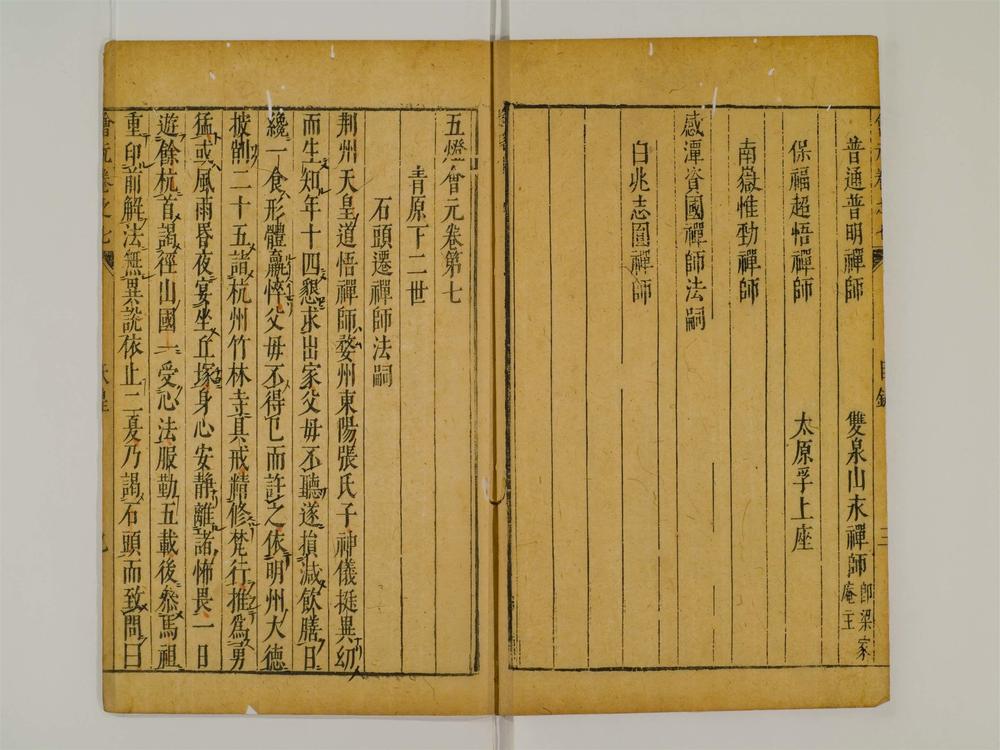 普通普明禪師
雙泉山永禪師
即梁家
庵主
保福超悟禪師
太原孚上座
南嶽惟勁禪師
感潭資國禪師法嗣
白兆志圓禪師
五燈會元卷第七
青原下二世
石頭遷禪師法嗣
荆州天皇道悟禪師婺州東陽張氏子神儀挺異幼
而生知年十四懇求出家父母不聽遂損減飲膳日
纔一食形體羸悴父母不得已而許之依明州大德
披削二十五詣杭州竹林寺具戒精修梵行推爲勇
猛或風雨昏夜宴坐丘塚身心安靜離諸怖畏一日
遊餘杭首謁徑山國一受心法服勤五載後參馬祖
重印前解法無異說依止二夏乃謁石頭而致問曰